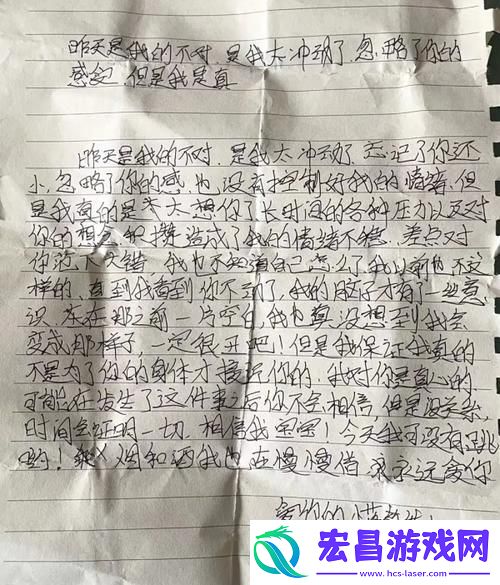 昨天是我的不对,是我太冲动了,忽略了你的
感,但是我是真
昨天是我的不对,是我太冲动了,忘记了你还
小,忽略了你的感,也没有控制好我的情绪,但
是我真的是太想你了,长时间的各种压力以及对
你的想念积攒造成了我的情绪不稳,差点对
你犯了大错,我也不知道自己怎么了,我以前也不这
样的,直到我看到你不动了,我的脑子才有了一丝意
识,在那之前一片空白我也真没想到我会
变成那样子,一定很丑吧!但是我保证我真的
不是为了你的身体才接近你的,我对你是真心的,
可能在发生了这件事之后你不会相信,但是没关系,
时间会证明一切,相信我宝宝!今天我可没有
约!烟和酒我也在慢慢借,永远爱你
爱你的
宏昌游戏网
www.hcs-laser.com